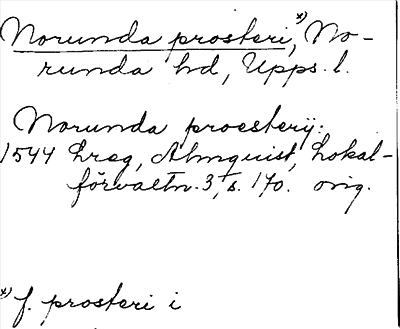 Norunda prosteri,*) No-
runda hd, Upps. l.
Norunda proesterij:
1544 Lreg, Almquist, Lokal-
förvaltn. 3, s. 170. orig.
*) f. prosteri i